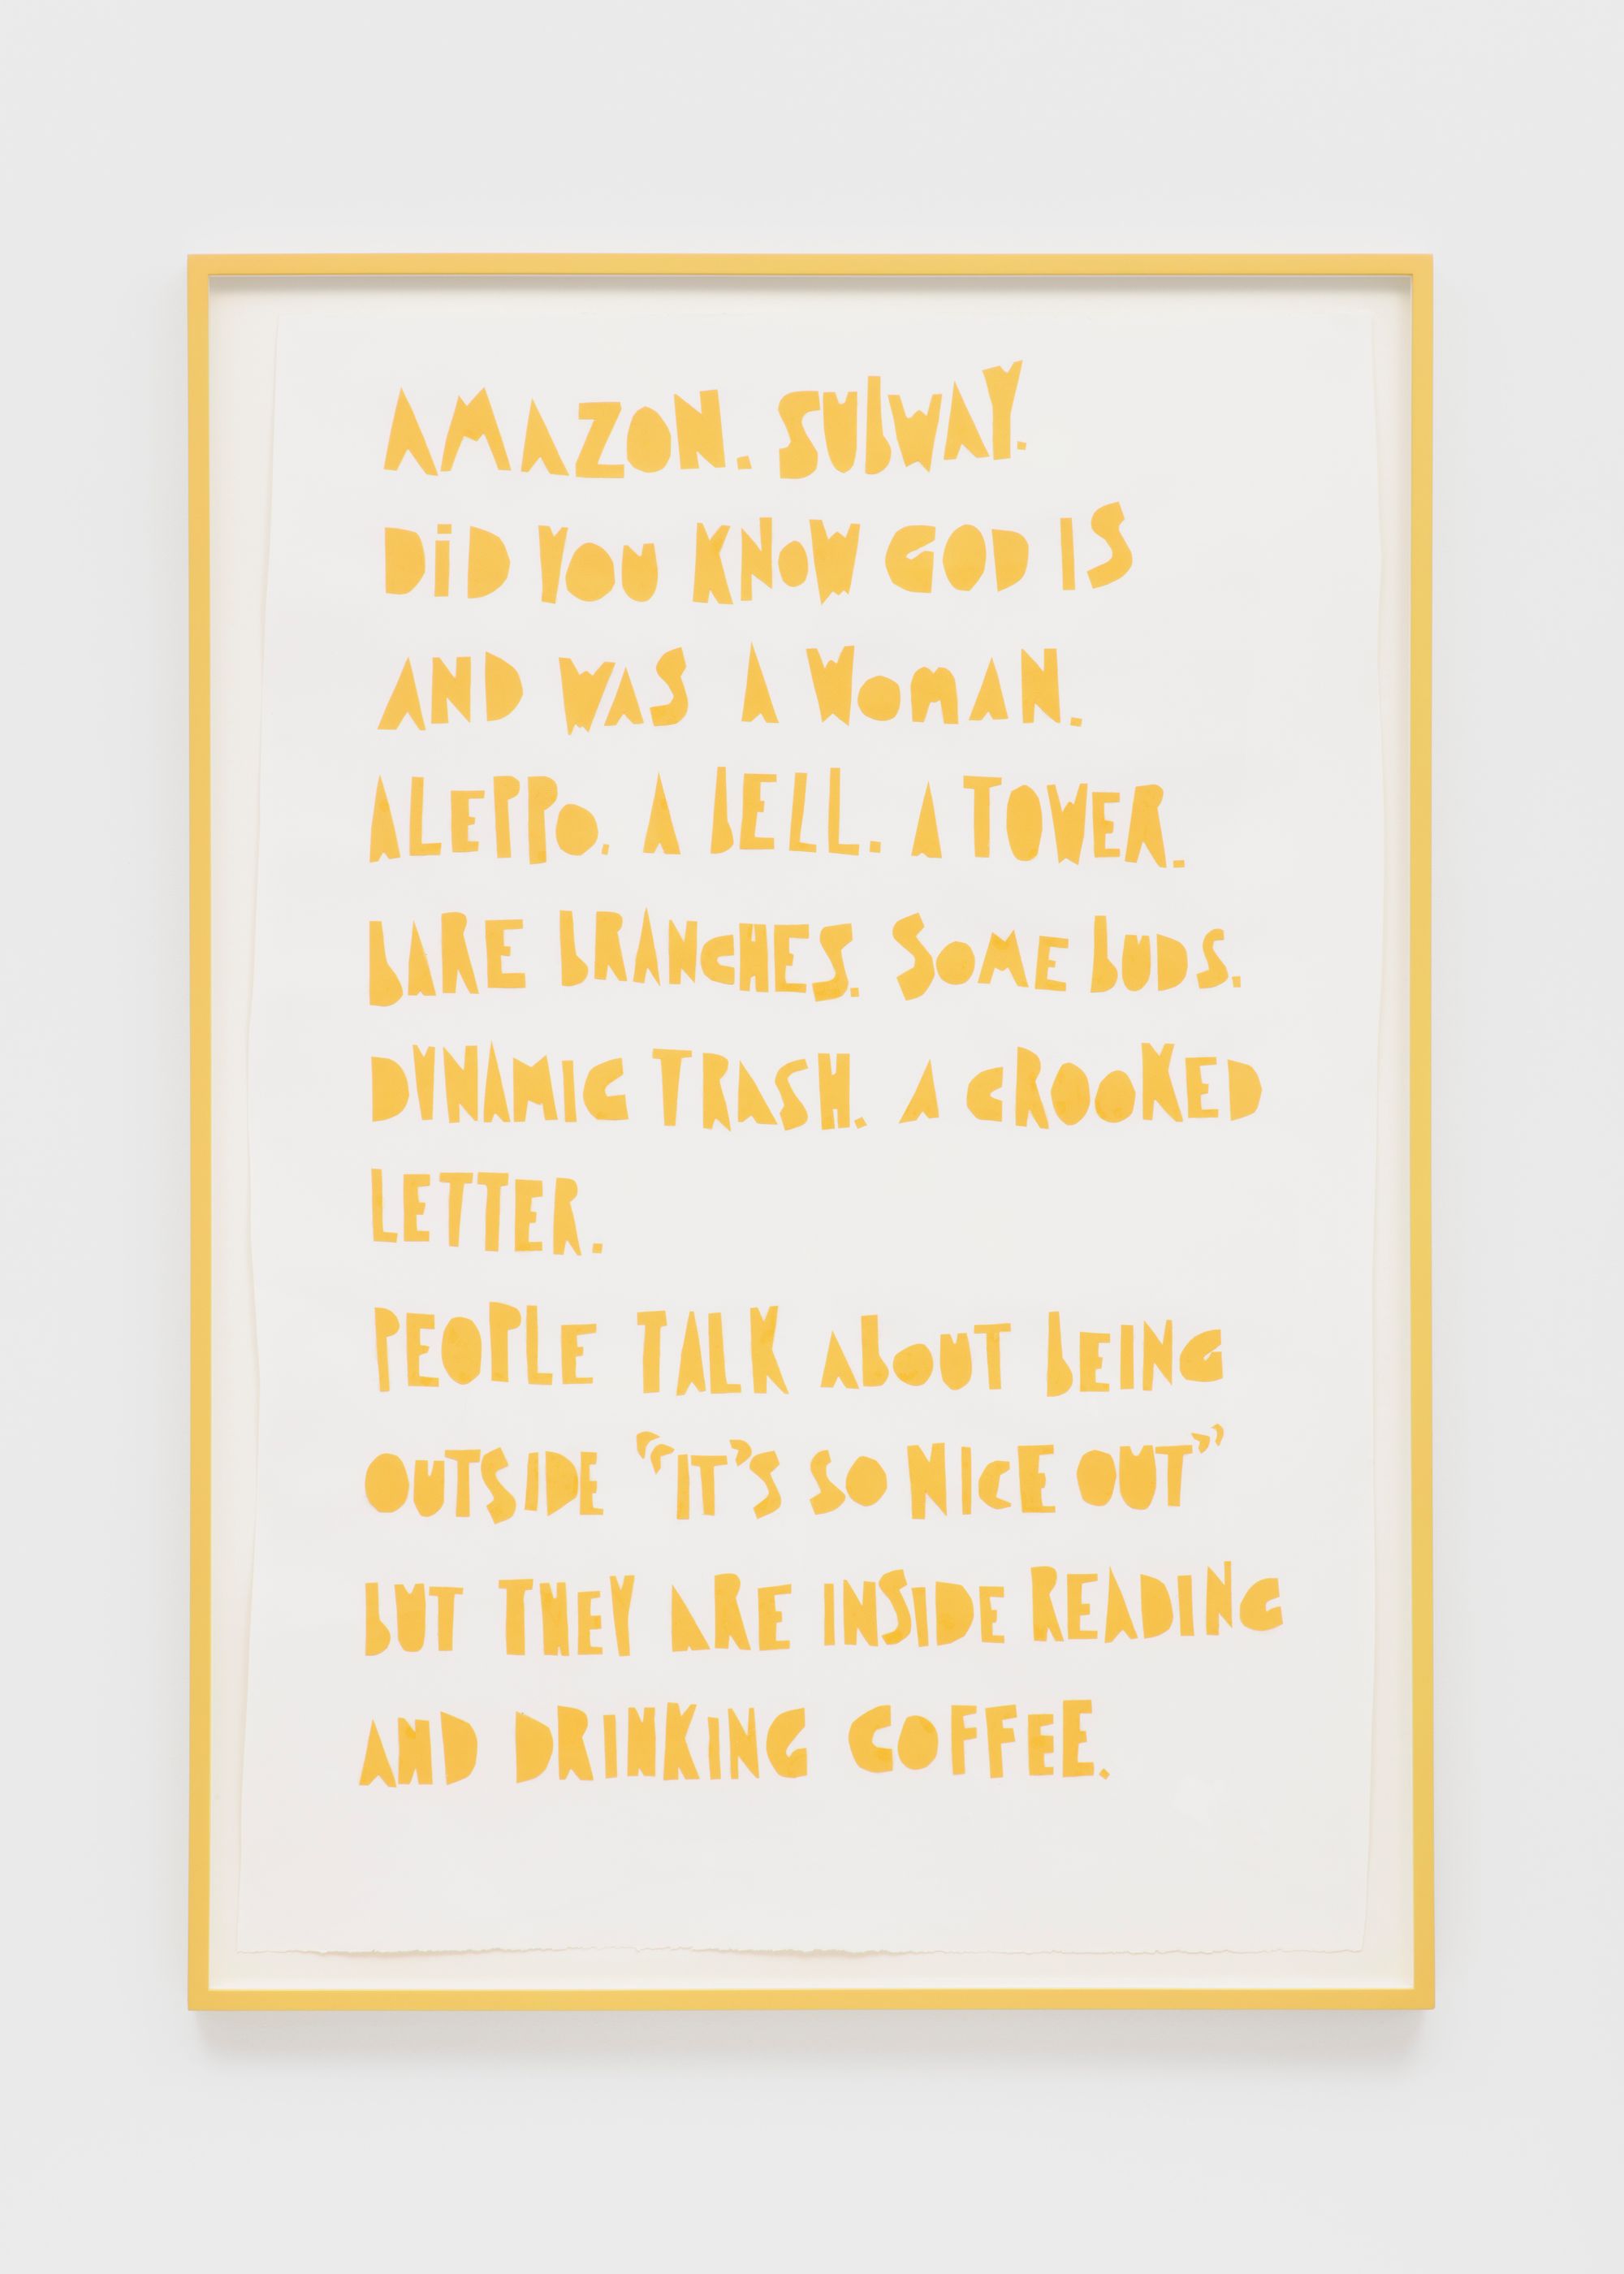 AMAZON. SUbWAY.
DiD YOU KNOW GOD IS
AND WAS A WOMAN.
ALEPPO. A bELL. A TOWER.
bARE bRANCHES. SOME bUDS.
DYNAMIC TRASH. A CROOKED
LETTER.
PEOPLE TALK AbOUT bEING
OUTSIDE “IT’S SO NICE OUT”
bUT THEY ARE INSIDE READING
AND DRINKING COFFEE.